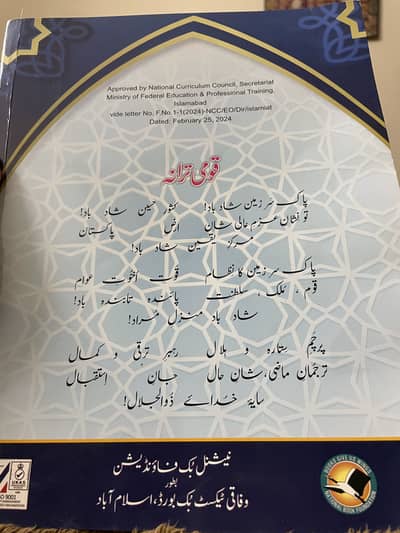 Approved by National Curriculum Council, Secretariat
Ministry of Federal Education & Professional Training,
Islamabad
vide letter No. F.No.1-1(2024)-NCC/EO/Dir/islamiat
Dated: February 25, 2024
قومی ترانہ
پاک سرزمین شاد باد! کشورِ حسین شاد باد!
تو نشانِ عزمِ عالی شان ارضِ پاکستان
مرکزِ یقین شاد باد!
پاک سرزمین کا نظام قوّتِ اُخوّتِ عوام
قوم ، مُلک ، سلطنت پائندہ تابندہ باد!
شاد باد منزلِ مُراد!
پرچمِ ستارہ و ہلال رہبرِ ترقی و کمال
ترجمانِ ماضی، شانِ حال جانِ استقبال
سایۂ خدائے ذُوالجلال!
نیشنل بک فاؤنڈیشن
بطور
وفاقی ٹیکسٹ بک بورڈ، اسلام آباد
UKAS
ISO 9001
BOOKS GIVE US WORLD
NATIONAL BOOK FOUNDATION